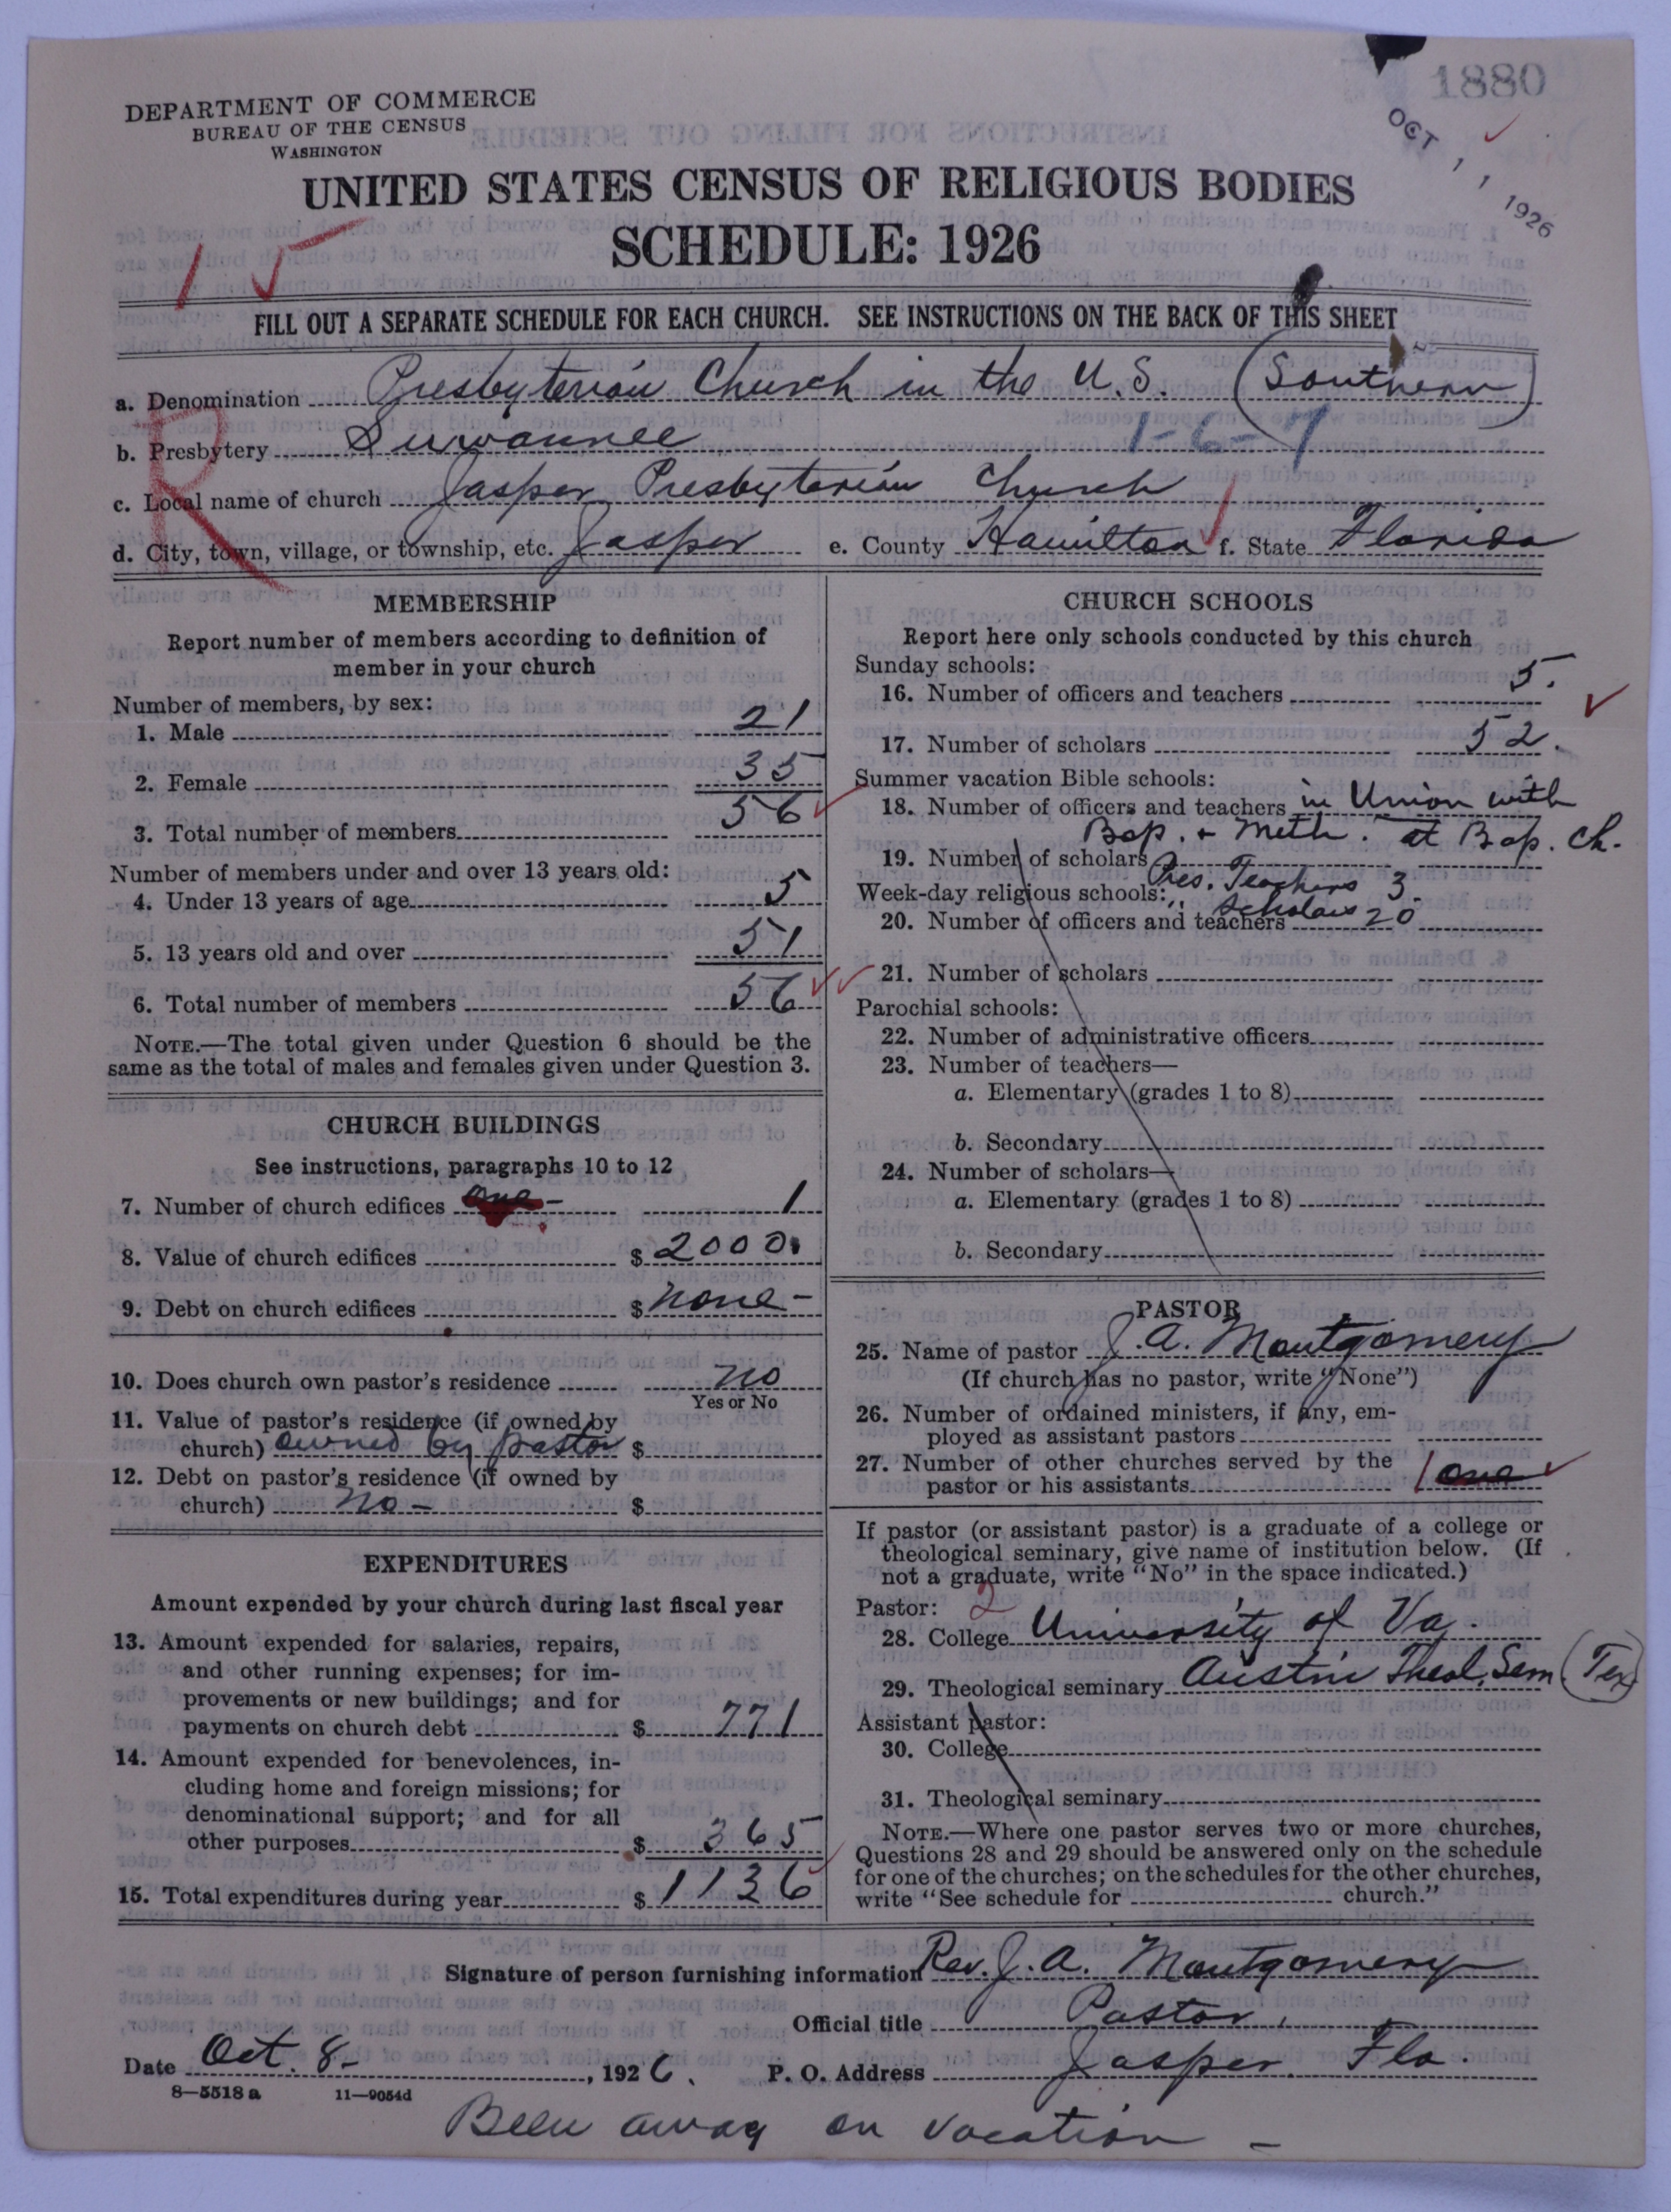 DEPARTMENT OF COMMERCE
BUREAU OF THE CENSUS
WASHINGTON
1880
OCT 11 1926
UNITED STATES CENSUS OF RELIGIOUS BODIES
SCHEDULE: 1926
15
FILL OUT A SEPARATE SCHEDULE FOR EACH CHURCH. SEE INSTRUCTIONS ON THE BACK OF THIS SHEET
a. Denomination Presbyterian Church in the U.S. (Southern)
1-6-7
b. Presbytery Suwannee
R
c. Local name of church Jasper Presbyterian Church
d. City, town, village, or township, etc. Jasper e. County Hamilton f. State Florida
MEMBERSHIP
Report number of members according to definition of
member in your church
Number of members, by sex:
1. Male 21
2. Female 35
3. Total number of members 56
Number of members under and over 13 years old:
4. Under 13 years of age 5
5. 13 years old and over 51
6. Total number of members 56
NOTE.—The total given under Question 6 should be the
same as the total of males and females given under Question 3.
CHURCH BUILDINGS
See instructions, paragraphs 10 to 12
7. Number of church edifices one- 1
8. Value of church edifices $ 2000.
9. Debt on church edifices $ none-
10. Does church own pastor's residence no
Yes or No
11. Value of pastor's residence (if owned by
church) owned by pastor $
12. Debt on pastor's residence (if owned by
church) no- $
EXPENDITURES
Amount expended by your church during last fiscal year
13. Amount expended for salaries, repairs,
and other running expenses; for im-
provements or new buildings; and for
payments on church debt $ 771
14. Amount expended for benevolences, in-
cluding home and foreign missions; for
denominational support; and for all
other purposes $ 365
15. Total expenditures during year $ 1136
CHURCH SCHOOLS
Report here only schools conducted by this church
Sunday schools:
16. Number of officers and teachers 5.
17. Number of scholars 52.
Summer vacation Bible schools:
18. Number of officers and teachers in Union with
Bap. + Meth. at Bap. Ch.
19. Number of scholars
Pres. Teachers 3
Week-day religious schools:
" Scholars 20
20. Number of officers and teachers
21. Number of scholars
Parochial schools:
22. Number of administrative officers
23. Number of teachers—
a. Elementary (grades 1 to 8)
b. Secondary
24. Number of scholars—
a. Elementary (grades 1 to 8)
b. Secondary
PASTOR
25. Name of pastor J. A. Montgomery
(If church has no pastor, write "None")
26. Number of ordained ministers, if any, em-
ployed as assistant pastors
27. Number of other churches served by the
pastor or his assistants 1 one
If pastor (or assistant pastor) is a graduate of a college or
theological seminary, give name of institution below. (If
not a graduate, write "No" in the space indicated.)
Pastor: 2
28. College University of Va.
29. Theological seminary Austin Theol. Sem. (Tex)
Assistant pastor:
30. College
31. Theological seminary
NOTE.—Where one pastor serves two or more churches,
Questions 28 and 29 should be answered only on the schedule
for one of the churches; on the schedules for the other churches,
write "See schedule for church."
Signature of person furnishing information Rev. J. A. Montgomery
Official title Pastor,
Date Oct. 8-, 1926. P. O. Address Jasper Fla.
8—5518 a 11—9054d
Been away on vacation -